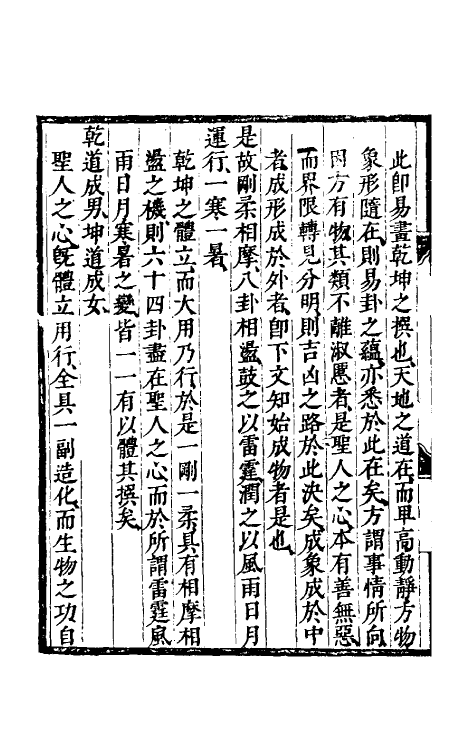 此卽易畫乾坤之撰也天地之道在而卑高動靜方物
象形隨在則易卦之蘊亦悉於此在矣方謂事情所向
因方有物其類不離淑慝者是聖人之心本有善無惡
而界限轉見分明則吉凶之路於此決矣成象成於中
者成形成於外者卽下文知始成物者是也
是故剛柔相摩八卦相盪鼓之以雷霆潤之以風雨日月
運行一寒一暑
乾坤之體立而大用乃行於是一剛一柔具有相摩相
盪之機則六十四卦盡在聖人之心而於所謂雷霆風
雨日月寒暑之變皆一一有以體其撰矣
乾道成男坤道成女
聖人之心旣體立用行全具一副造化而生物之功自